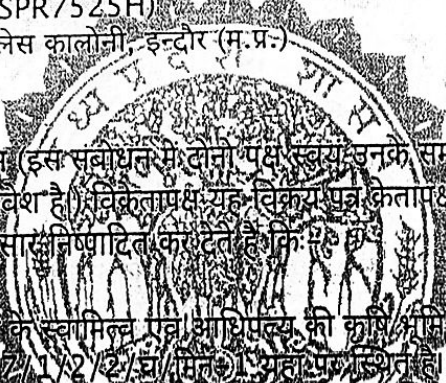 SPR7525H)
लिस कालोनी, इन्दौर (म.प्र.)
ध्य प्रदेश शास
(इस संबोधन में दोनों पक्ष स्वयं उनके
वेश है) विक्रेतापक्ष यह विक्रय पत्र क्रेतापक्ष
सार निष्पादित कर देते है कि:-
के स्वामित्व एवं आधिपत्य की कृषि भूमि
7/1/2/2/घ/मिन-1 यहाँ पर स्थित है